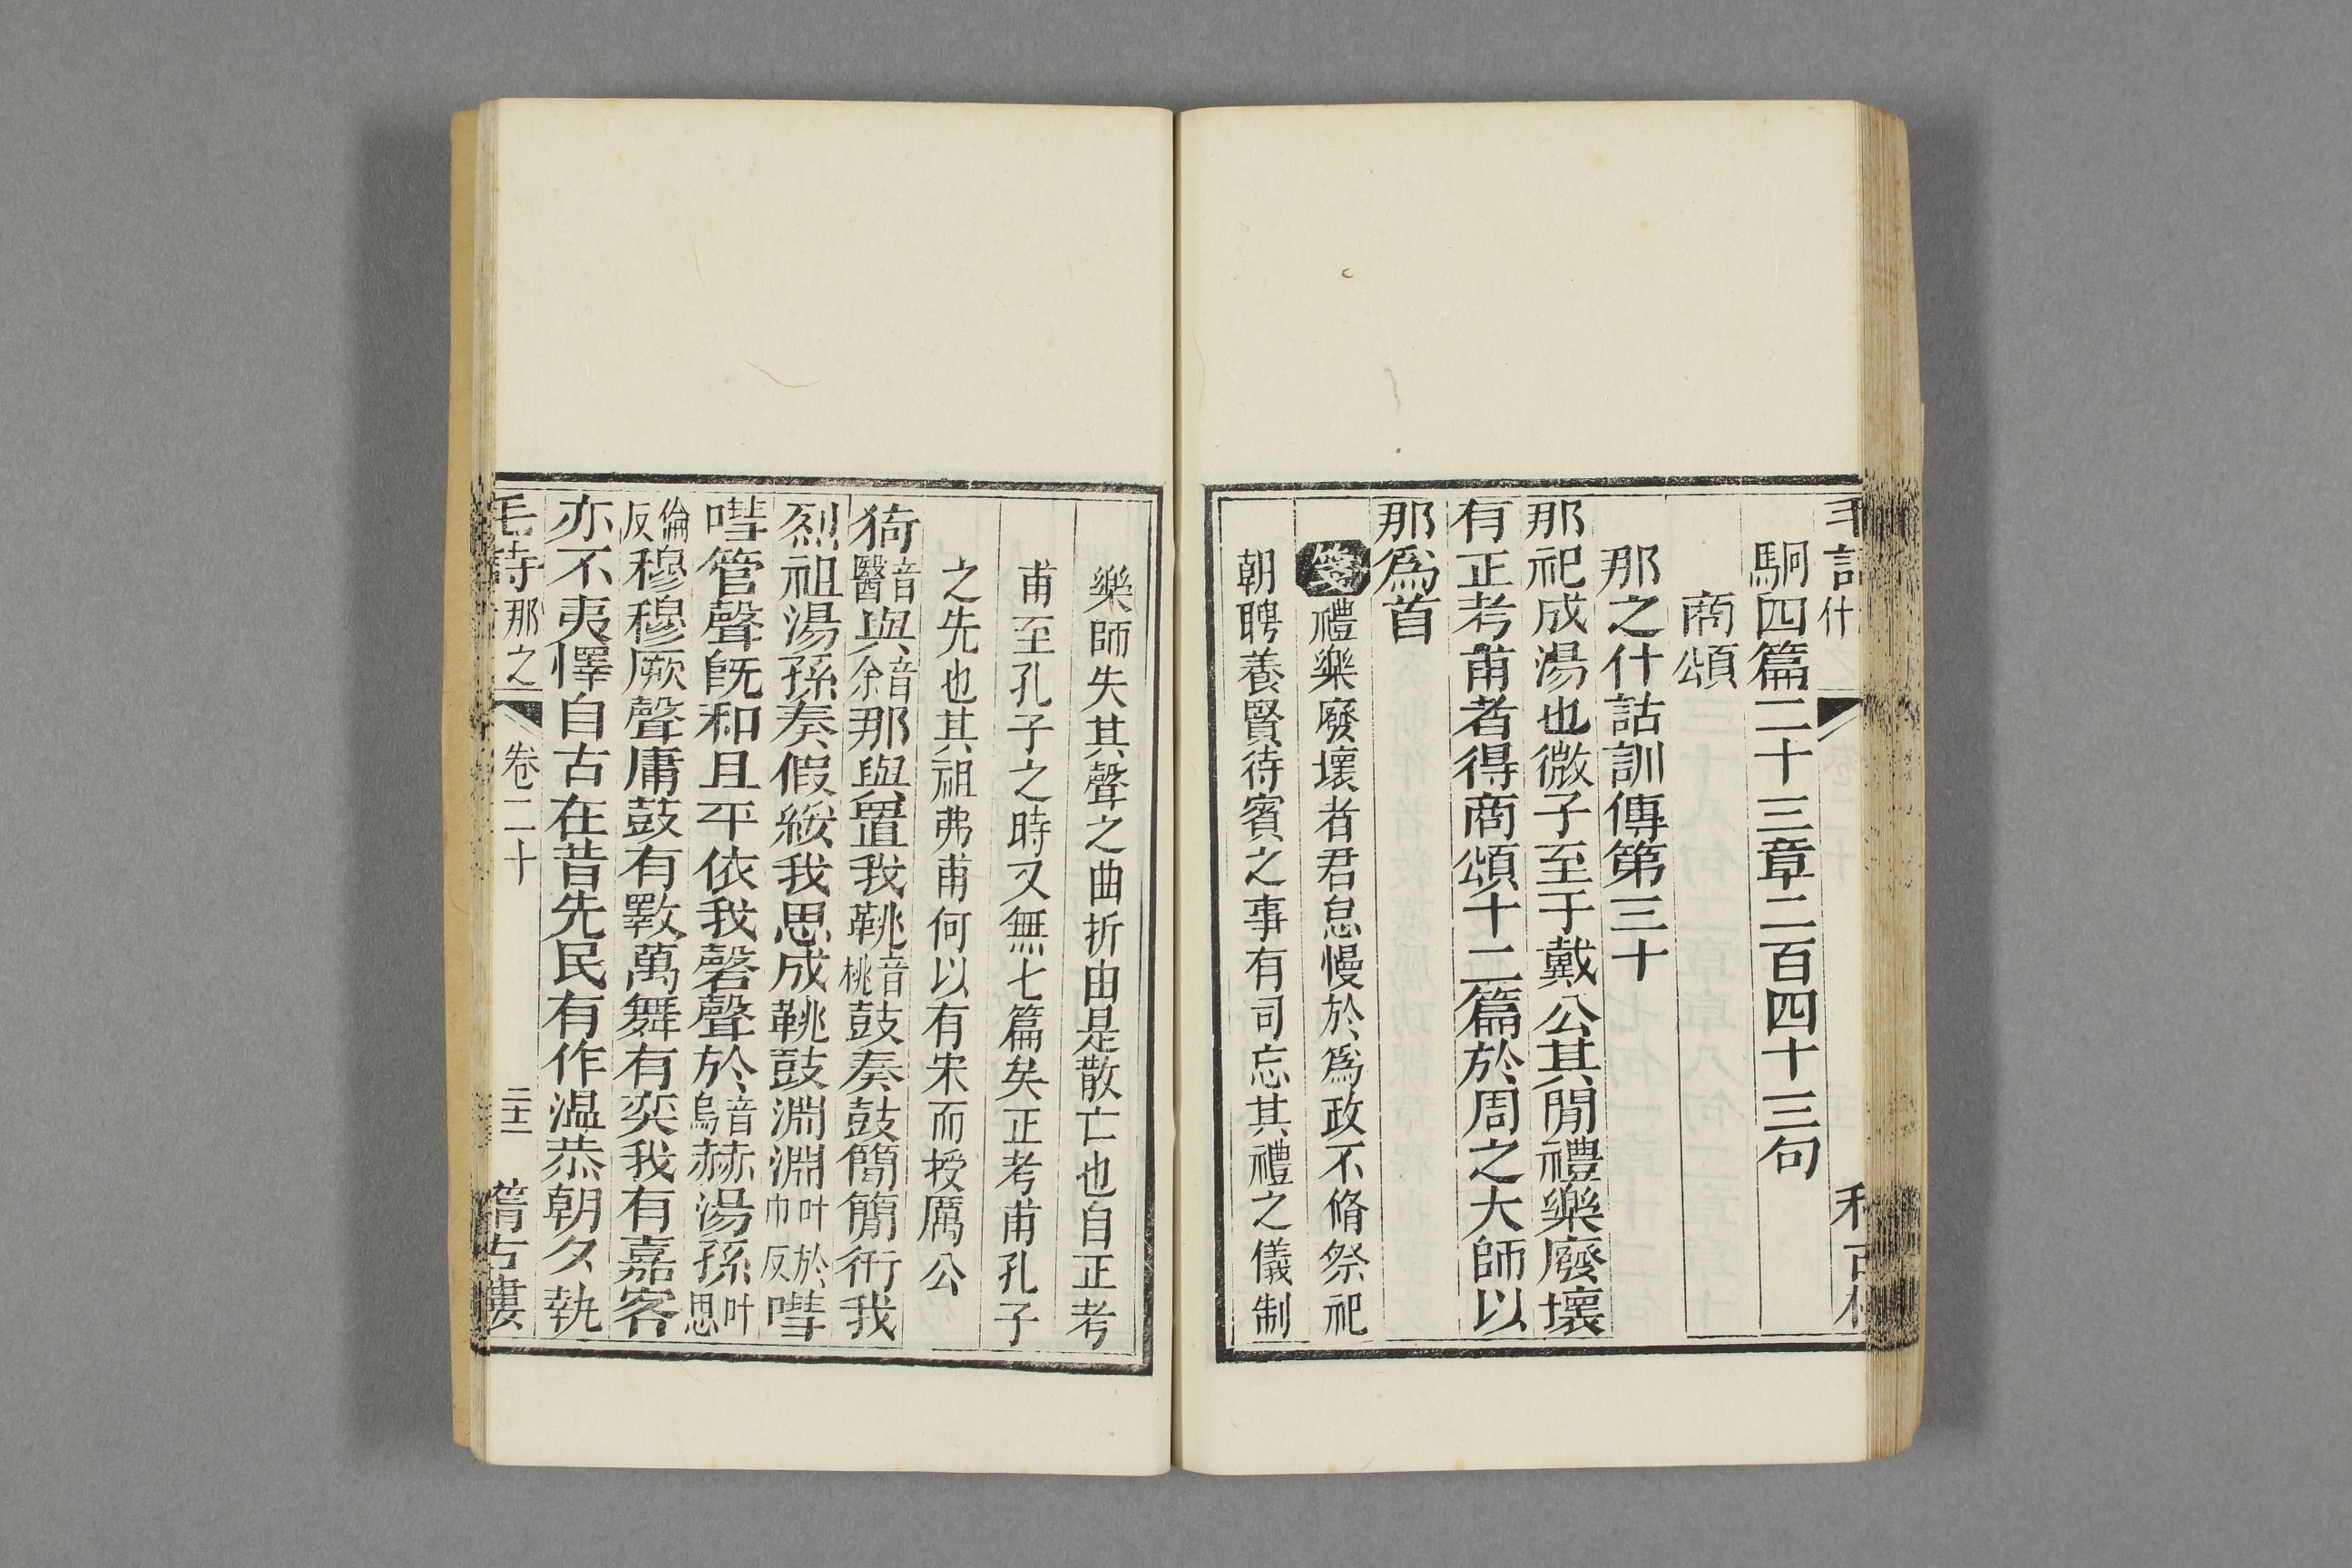 駉四篇二十三章二百四十三句
商頌
那之什詁訓傳第三十
那祀成湯也微子至于戴公其閒禮樂廢壞
有正考甫者得商頌十二篇於周之大師以
那爲首
箋禮樂廢壞者君怠慢於爲政不脩祭祀
朝聘養賢待賓之事有司忘其禮之儀制
樂師失其聲之曲折由是散亡也自正考
甫至孔子之時又無七篇矣正考甫孔子
之先也其祖弗甫何以有宋而授厲公
猗音醫與音余那與置我鞉音桃鼓奏鼓簡簡衎我
烈祖湯孫奏假綏我思成鞉鼓淵淵叶於巾反嘒
嘒管聲旣和且平依我磬聲於音烏赫湯孫叶思
倫反穆穆厥聲庸鼓有斁萬舞有奕我有嘉客
亦不夷懌自古在昔先民有作温恭朝夕執
毛詩那之 卷二十